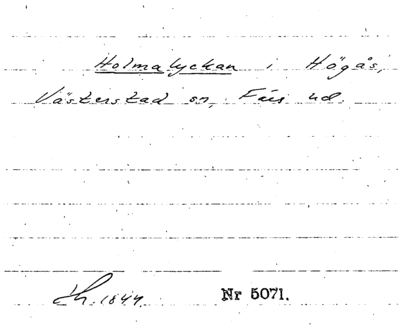 Holmalyckan i Högås,
Västerstad sn, Färs hd.
Lh. 1844. Nr 5071.